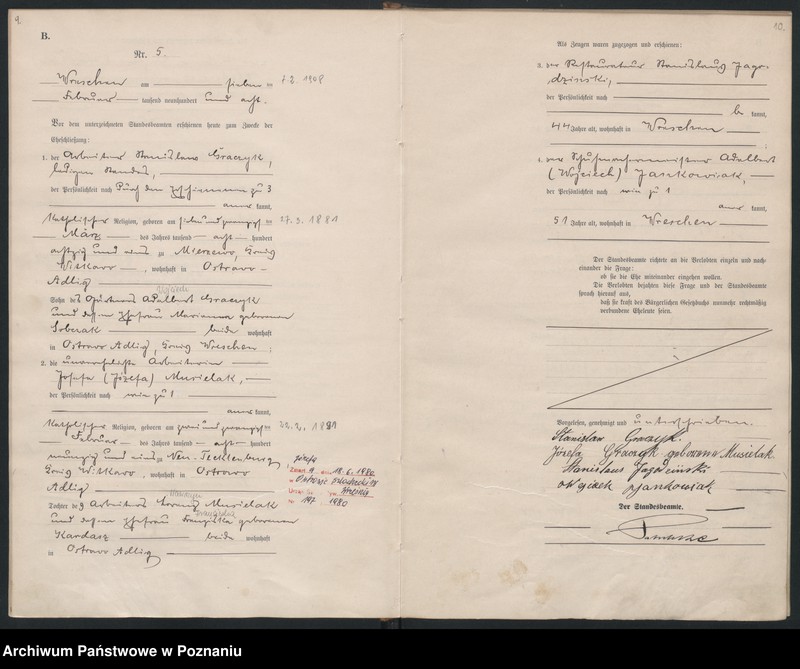 9.
B.
Nr. 5.
Wreschen am sieben ten 7.2.1908
Februar tausend neunhundert und acht.
Vor dem unterzeichneten Standesbeamten erschienen heute zum Zwecke der
Eheschließung:
1. der Arbeiter Stanislaw Graczyk,
ledigen Standes,
der Persönlichkeit nach durch den zu 3
aner kannt,
katholischer Religion, geboren am sieben und zwanzigsten 27.3.1881
März des Jahres tausend acht hundert
achtzig und eins zu Mierzewo, Kreis
Witkowo, wohnhaft in Ostrowo
Adlig
Sohn des Adalbert Graczyk
und dessen Ehefrau Marianna geborenen
Sobczak beide wohnhaft
in Ostrowo Adlig, Kreis Wreschen;
2. die unverehelichte Arbeiterin
Josefa (Józefa) Musielak,
der Persönlichkeit nach wie zu 1
aner kannt,
katholischer Religion, geboren am zwei und zwanzigsten 22.2.1891
Februar des Jahres tausend acht hundert
neunzig und eins zu Neu-Tecklenburg,
Kreis Witkowo, wohnhaft in Ostrowo
Adlig
Józefa
Zmarł a dnia 18.6.1980
w Ostrowie Szlacheckim
Września
nr 147 1980
Tochter des Arbeiters Lorenz Musielak
und dessen Ehefrau Franziska geborenen
Kardasz beide wohnhaft
in Ostrowo Adlig
10.
Als Zeugen waren zugezogen und erschienen:
3. der Restaurateur Stanislaus Jago-
dzinski,
der Persönlichkeit nach
be kannt,
44 Jahre alt, wohnhaft in Wreschen
;
4. der Schuhmachermeister Adalbert
(Wojciech) Jankowiak,
der Persönlichkeit nach wie zu 1
aner kannt,
51 Jahre alt, wohnhaft in Wreschen
Der Standesbeamte richtete an die Verlobten einzeln und nach-
einander die Frage:
ob sie die Ehe miteinander eingehen wollen.
Die Verlobten bejahten diese Frage und der Standesbeamte
sprach hierauf aus,
daß sie kraft des Bürgerlichen Gesetzbuchs nunmehr rechtmäßig
verbundene Eheleute seien.
Vorgelesen, genehmigt und unterschrieben.
Stanislaw Graczyk.
Józefa Graczyk geborena Musielak
Stanislaus Jagodzinski
Jankowiak
Der Standesbeamte.
Archiwum Państwowe w Poznaniu